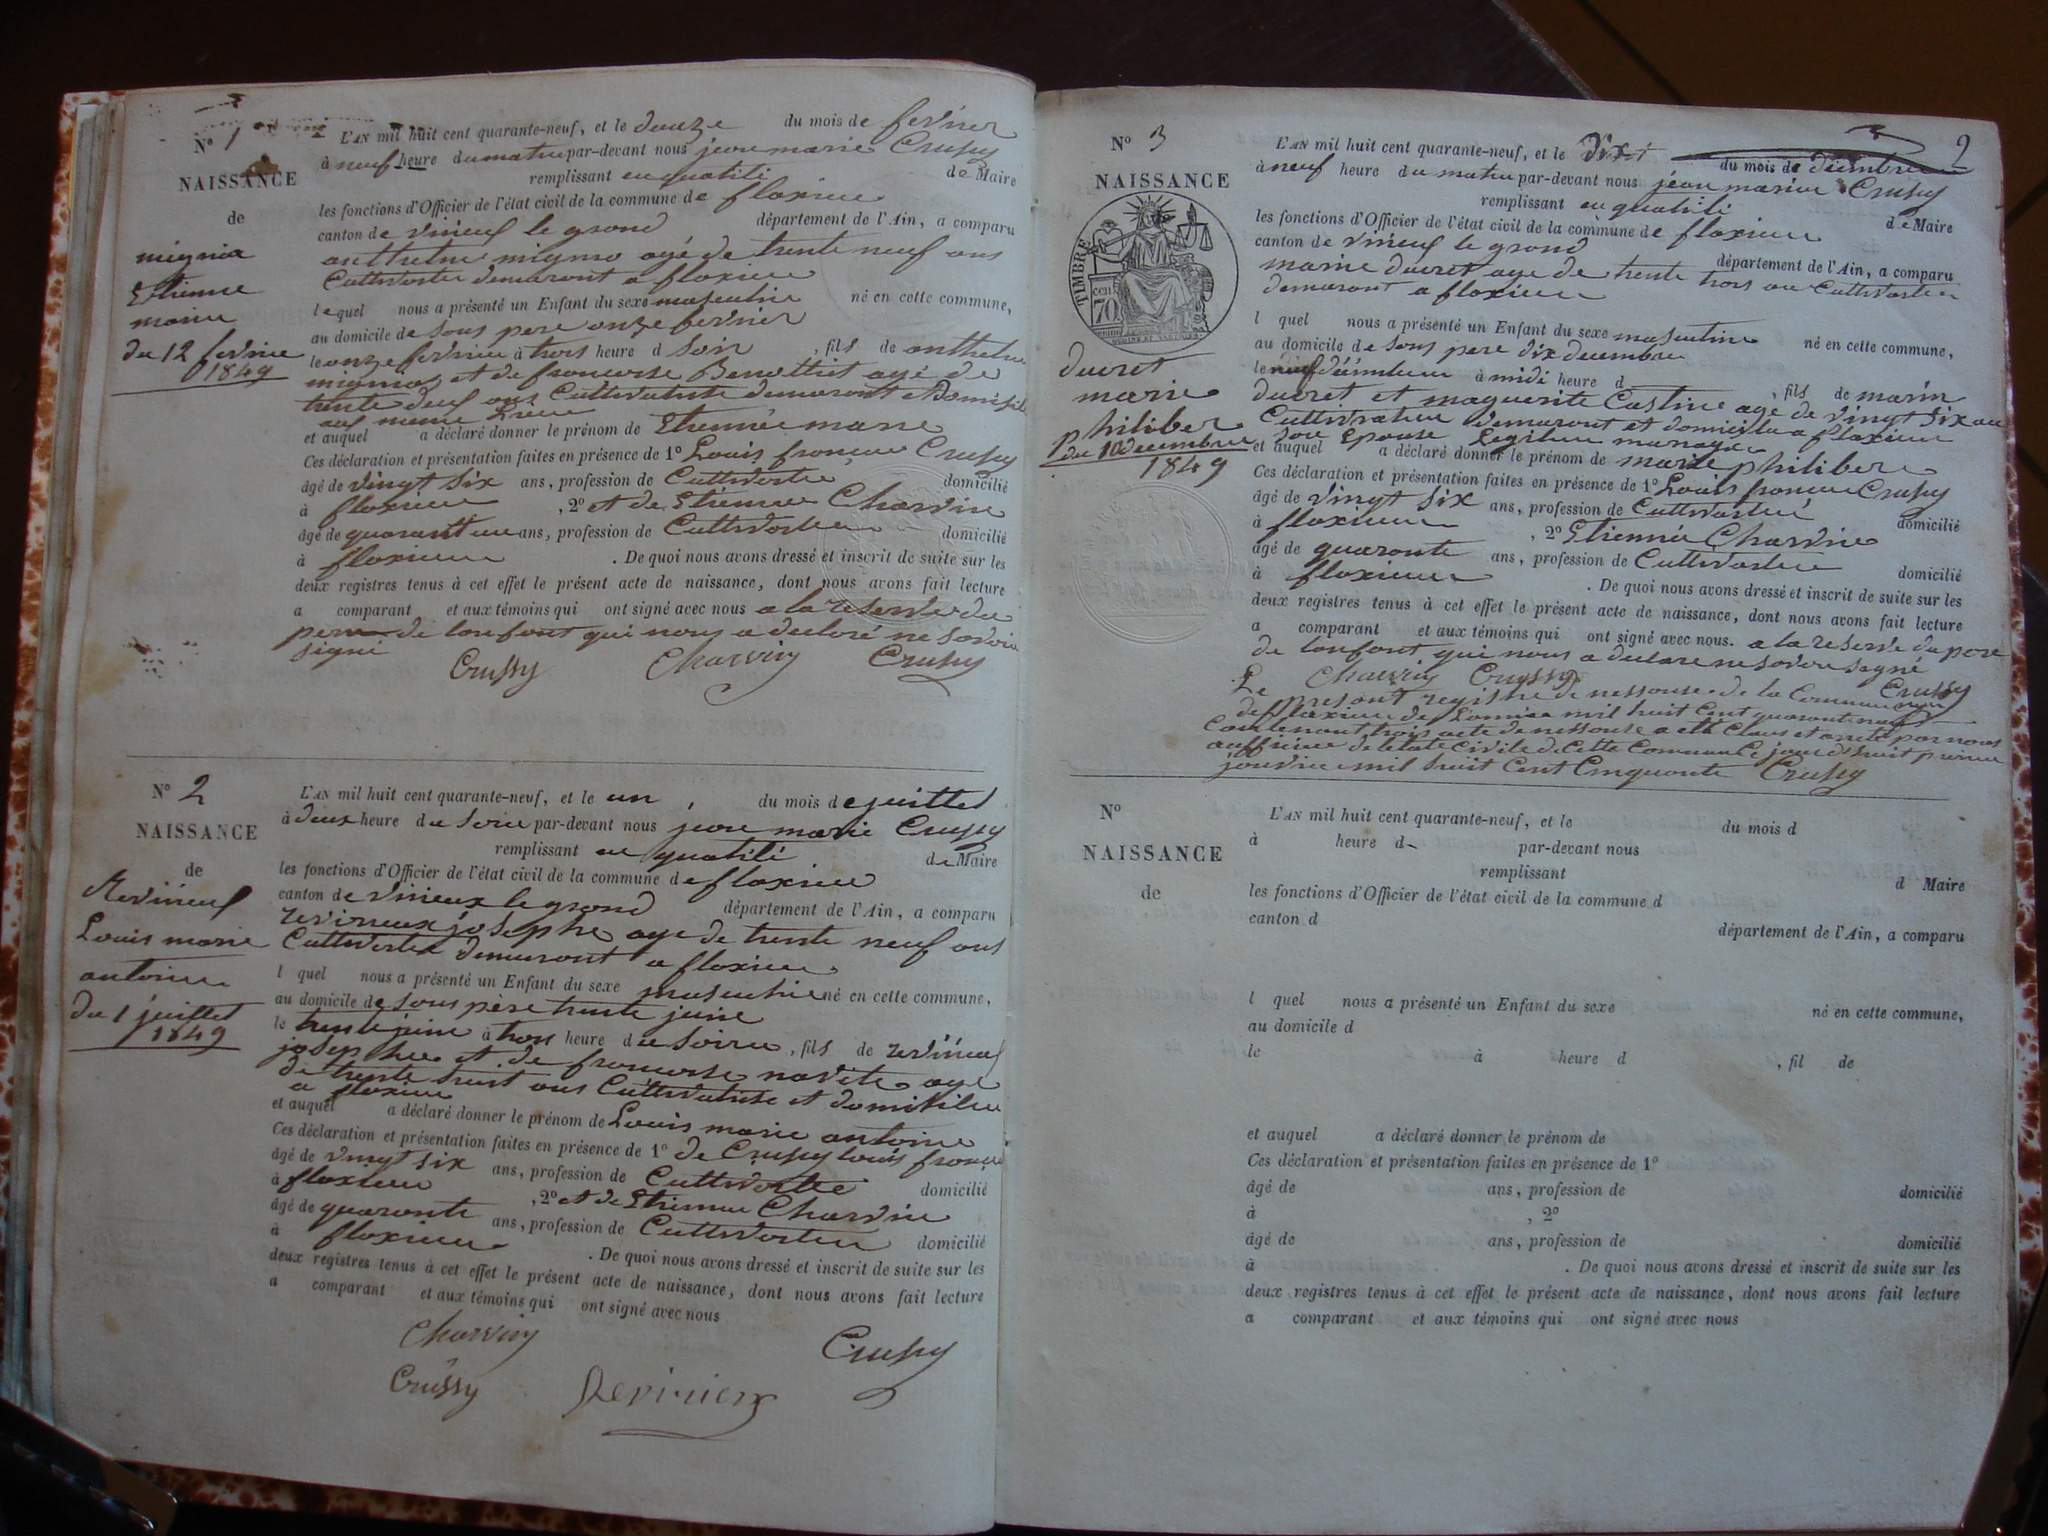 No 1
NAISSANCE
de
mignia
Etienne
marin
du 12 fevrie
1849
L'AN mil huit cent quarante-neuf, et le douze du mois de fevrier
à neuf heure du matin par-devant nous jean marie Crussy
remplissant en qualité de Maire
les fonctions d'Officier de l'état civil de la commune de floxieu
canton de virieuf le grand département de l'Ain, a comparu
anthelme mignio agé de trente neuf ans
Cultivateur demurant a floxieu
lequel nous a présenté un Enfant du sexe masculin né en cette commune,
au domicile de sous pere onze fevrier
le onze fevrier à trois heure d soir , fils de anthelme
et de francoise Benottist agé de
trente deuf ans Cultivatrice demurant et Domisilie
auf meme Lieu
et auquel a déclaré donner le prénom de Etienne marie
Ces déclaration et présentation faites en présence de 1° Louis francois Crussy
âgé de vingt six ans, profession de Cultivateur domicilié
à floxieu , 2° et de Etienne Charvin
âgé de quarant un ans, profession de Cultivateur domicilié
à floxieu . De quoi nous avons dressé et inscrit de suite sur les
deux registres tenus à cet effet le présent acte de naissance, dont nous avons fait lecture
a comparant et aux témoins qui ont signé avec nous a la reserve du
pere de lonfont qui nous a declaré ne savoir
signé
Crussy Charvin Crussy
No 2
NAISSANCE
de
Revineuf
Louis marie
antoine
du 1 juillet
1849
L'AN mil huit cent quarante-neuf, et le un du mois de juillet
à deux heure du soir par-devant nous jean marie Crussy
remplissant en qualité de Maire
les fonctions d'Officier de l'état civil de la commune de floxieu
canton de virieux le grand département de l'Ain, a comparu
revirieux josephe age de trente neuf ans
Cultivateur demurant a floxieu
l quel nous a présenté un Enfant du sexe masculin né en cette commune,
au domicile de sous père trente juin
le trente juin à trois heure du soire , fils de
josephe et de francoise navete age
de trente huit ans Cultivatrise et domisilie
a floxieu
et auquel a déclaré donner le prénom de Louis marie antoine
Ces déclaration et présentation faites en présence de 1° de Crussy louis francois
âgé de vingt six ans, profession de Cultivateur domicilié
à floxieu , 2° et de Etienne Charvin
âgé de quaronte ans, profession de Cultivateur domicilié
à floxieu . De quoi nous avons dressé et inscrit de suite sur les
deux registres tenus à cet effet le présent acte de naissance, dont nous avons fait lecture
a comparant et aux témoins qui ont signé avec nous
Charvin Crussy
Crussy Revirieux
2
No 3
NAISSANCE
TIMBRE
70 cent
ducret
marie
philiber
du 10 decembre
1849
L'AN mil huit cent quarante-neuf, et le dix du mois de decembre
à neuf heure du matin par-devant nous jean marie Crussy
remplissant en qualité de Maire
les fonctions d'Officier de l'état civil de la commune de floxieu
canton de virieuf le grand département de l'Ain, a comparu
marin ducret age de trente trois an Cultivateur
demurant a floxieu
l quel nous a présenté un Enfant du sexe masculin né en cette commune,
au domicile de sous pere dix decembre
le neuf à midi heure d , fils de marin
ducret et maguerite Castin age de vingt six an
Cultivatrice demurant et domisilie a floxieu
son Epouse Legitime
et auquel a déclaré donner le prénom de marie philiber
Ces déclaration et présentation faites en présence de 1° Louis francois Crussy
âgé de vingt six ans, profession de Cultivateur domicilié
à floxieu , 2° Etienne Charvin
âgé de quaronte ans, profession de Cultivateur domicilié
à floxieu . De quoi nous avons dressé et inscrit de suite sur les
deux registres tenus à cet effet le présent acte de naissance, dont nous avons fait lecture
a comparant et aux témoins qui ont signé avec nous. a la reserve du pere
de lonfont qui nous a declare ne savoir signé
Charvin Crussy Crussy
Le presant registre de nessonse de la Commune
de floxieu de Lannee mil huit Cent quaront neuf
Contenant trois acte de nessonse a eté Claus et areté par nous
aufficier de letat Civile de Cette Commune Ce jour d'huit premier
jonvier mil huit Cent Cinquonte Crussy
No
NAISSANCE
de
L'AN mil huit cent quarante-neuf, et le du mois d
à heure d par-devant nous
remplissant d Maire
les fonctions d'Officier de l'état civil de la commune d
canton d département de l'Ain, a comparu
l quel nous a présenté un Enfant du sexe né en cette commune,
au domicile d
le à heure d , fil de
et auquel a déclaré donner le prénom de
Ces déclaration et présentation faites en présence de 1°
âgé de ans, profession de domicilié
à , 2°
âgé de ans, profession de domicilié
à . De quoi nous avons dressé et inscrit de suite sur les
deux registres tenus à cet effet le présent acte de naissance, dont nous avons fait lecture
a comparant et aux témoins qui ont signé avec nous